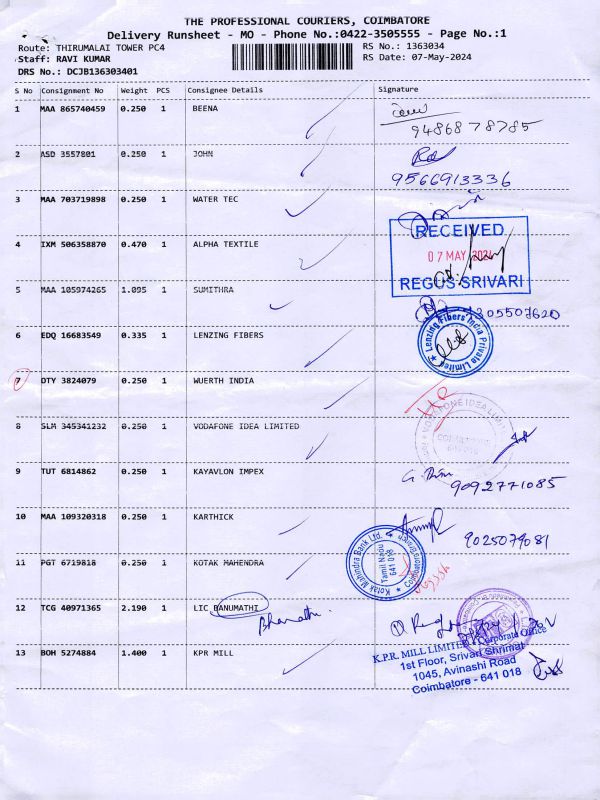 THE PROFESSIONAL COURIERS, COIMBATORE
Delivery Runsheet - MO - Phone No.:0422-3505555 - Page No.:1
Route: THIRUMALAI TOWER PC4
RS No.: 1363034
Staff: RAVI KUMAR
RS Date: 07-May-2024
DRS No.: DCJB136303401
S No Consignment No Weight PCS Consignee Details Signature
1 MAA 865740459 0.250 1 BEENA
9486878785
2 ASD 3557801 0.250 1 JOHN
9566913336
3 MAA 703719898 0.250 1 WATER TEC
RECEIVED
07 MAY 2024
REGUS SRIVARI
4 IXM 506358870 0.470 1 ALPHA TEXTILE
5 MAA 105974265 1.095 1 SUMITHRA
6 EDQ 16683549 0.335 1 LENZING FIBERS
Lenzing Fibers India Private Limited
7 DTY 3824079 0.250 1 WUERTH INDIA
8 SLM 345341232 0.250 1 VODAFONE IDEA LIMITED
VODAFONE IDEA LIMITED
9 TUT 6814862 0.250 1 KAYAVLON IMPEX
9092771085
10 MAA 109320318 0.250 1 KARTHICK
9025079081
11 PGT 6719818 0.250 1 KOTAK MAHENDRA
Kotak Mahindra Bank Ltd.
Tamil Nadu
641 018
12 TCG 40971365 2.190 1 LIC BANUMATHI
Bhanathi.
13 BOH 5274884 1.400 1 KPR MILL
K.P.R. MILL LIMITED Corporate Office
1st Floor, Srivari Shrimat
1045, Avinashi Road
Coimbatore - 641 018